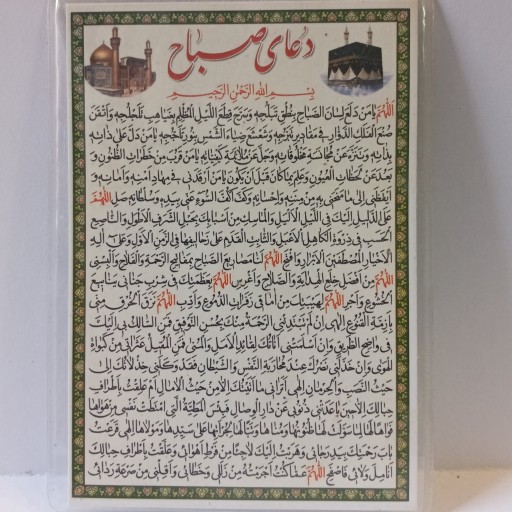 دعای صباح
بِسْمِ اللهِ الرَّحْمٰنِ الرَّحِيمِ
اَللّٰهُمَّ يا مَنْ دَلَعَ لِسانَ الصَّباحِ بِنُطْقِ تَبَلُّجِهِ وَسَرَّحَ قِطَعَ اللَّيْلِ الْمُظْلِمِ بِغَياهِبِ تَلَجْلُجِهِ وَاَتْقَنَ
صُنْعَ الْفَلَكِ الدَّوّارِ فى مَقاديرِ تَبَرُّجِهِ وَشَعْشَعَ ضِياءَ الشَّمْسِ بِنُورِ تَاَجُّجِهِ يا مَنْ دَلَّ عَلى ذاتِهِ
بِذاتِهِ وَتَنَزَّهَ عَنْ مُجانَسَةِ مَخْلُوقاتِهِ وَجَلَّ عَنْ مُلائَمَةِ كَيْفِيّاتِهِ يا مَنْ قَرُبَ مِنْ خَطَراتِ الظُّنُونِ وَ
بَعُدَ عَنْ لَحَظاتِ الْعُيُونِ وَعَلِمَ بِما كانَ قَبْلَ اَنْ يَكُونَ يا مَنْ اَرْقَدَنى فى مِهادِ اَمْنِهِ وَاَمانِهِ وَ
اَيْقَظَنى اِلى ما مَنَحَنى بِهِ مِنْ مِنَنِهِ وَاِحْسانِهِ وَكَفَّ اَكُفَّ السُّوءِ عَنّى بِيَدِهِ وَسُلْطانِهِ صَلِّ اللّٰهُمَّ
عَلَى الدَّليلِ اِلَيْكَ فِى اللَّيْلِ الْاَلْيَلِ وَالْماسِكِ مِنْ اَسْبابِكَ بِحَبْلِ الشَّرَفِ الْاَطْوَلِ وَالنّاصِعِ
الْحَسَبِ فى ذِرْوَةِ الْكاهِلِ الْاَعْبَلِ وَالثّابِتِ الْقَدَمِ عَلى زَحاليفِها فِى الزَّمَنِ الْاَوَّلِ وَعَلى الِهِ
الْاَخْيارِ الْمُصْطَفَيْنَ الْاَبْرارِ وَافْتَحِ اللّٰهُمَّ لَنا مَصاريعَ الصَّباحِ بِمَفاتيحِ الرَّحْمَةِ وَالْفَلاحِ وَاَلْبِسْنى
اللّٰهُمَّ مِنْ اَفْضَلِ خِلَعِ الْهِدايَةِ وَالصَّلاحِ وَاَغْرِسِ اللّٰهُمَّ بِعَظَمَتِكَ فى شِرْبِ جَنانى يَنابيعَ
الْخُشُوعِ وَاَجْرِ اللّٰهُمَّ لِهَيْبَتِكَ مِنْ اماقى زَفَراتِ الدُّمُوعِ وَاَدِّبِ اللّٰهُمَّ نَزَقَ الْخُرْقِ مِنّى
بِاَزِمَّةِ الْقُنُوعِ اِلهى اِنْ لَمْ تَبْتَدِئْنِى الرَّحْمَةُ مِنْكَ بِحُسْنِ التَّوْفيقِ فَمَنِ السّالِكُ بى اِلَيْكَ
فى واضِحِ الطَّريقِ وَاِنْ اَسْلَمَتْنى اَناتُكَ لِقائِدِ الْاَمَلِ وَالْمُنى فَمَنِ الْمُقيلُ عَثَراتى مِنْ كَبَواتِ
الْهَوى وَاِنْ خَذَلَنى نَصْرُكَ عِنْدَ مُحارَبَةِ النَّفْسِ وَالشَّيْطانِ فَقَدْ وَكَلَنى خِذْلانُكَ اِلى
حَيْثُ النَّصَبِ وَالْحِرْمانِ اِلهى اَتَرانى ما اَتَيْتُكَ اِلّا مِنْ حَيْثُ الْامالِ اَمْ عَلِقْتُ بِاَطْرافِ
حِبالِكَ اِلّا حينَ باعَدَتْنى ذُنُوبى عَنْ دارِ الْوِصالِ فَبِئْسَ الْمَطِيَّةُ الَّتِى امْتَطَتْ نَفْسى مِنْ هَواها
فَواهاً لَها لِما سَوَّلَتْ لَها ظُنُونُها وَمُناها وَتَبّاً لَها لِجُرْاَتِها عَلى سَيِّدِها وَمَوْلاها اِلهى قَرَعْتُ
بابَ رَحْمَتِكَ بِيَدِ رَجائى وَهَرَبْتُ اِلَيْكَ لاجِئاً مِنْ فَرْطِ اَهْوائى وَعَلَّقْتُ بِاَطْرافِ حِبالِكَ
اَنامِلَ وَلائى فَاصْفَحِ اللّٰهُمَّ عَمّا كُنْتُ اَجْرَمْتُهُ مِنْ زَلَلى وَخَطائى وَاَقِلْنى مِنْ صَرْعَةِ رِدائى